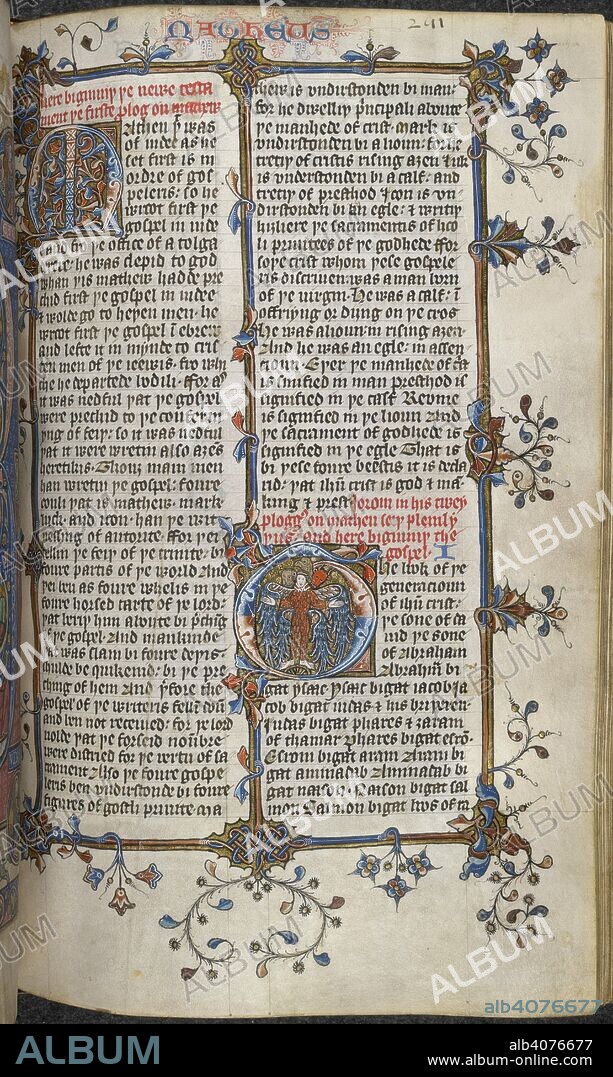 Matheus
241
Here biginniþ ye newe testa
ment ye firste plog on mathew
Mathen þt was
of iudee as he
set first is in
ordre of gos
peleris: so he
wroot first ye
gospel in iude
and fro ye office of a tolga
derere he was clepid to god
whan yis mathew hadde pre
chid first ye gospel in iudee
wolde go to heyen men. he
wroot first ye gospel ī ebrew
and lefte it in mynde to cris
ten men of ye iewis. fro whō
he departede bodili. ffor as
it was nedful yat ye gospel
were prechid to ye confermi
yng of feiy: so it was nedful
yat it were writin also aȝens
heretikis. Thouȝ many men
han writin ye gospel: foure
oonli yat is mathew. mark
luck. and ioon. han ye wit
nessing of autorite. ffor yei
tellin ye feiy of ye trinite. bi
foure partis of ye world And
yei ben as foure whelis in ye
foure horsed carte of ye lord:
yat beriy him aboute bi p̄ching
of ye gospel. And mankinde
yat was slain bi foure deyis.
schulde be quikenid. bi ye pre
ching of hem And þfore the
gospels of oyere writeris fellen doū
and ben not receiued. for ye lord
nolde yat ye forseid noūbre
were distried for ye vertu of sa
crament Also ye foure gospe
leris ben vndirstonde bi foure
figures of gostli priuite Ma
thew is vndirstonden bi man:
for he dwelliy p̄ncipali aboute
ye manhede of crist. Mark is
vndirstonden bi a lioun: for he
tretiy of cristis rising aȝen. luk
is vnderstonden bi a calf: and
tretiy of presthod. Ioon is vn
dirstonden bi an egle: & writiy
hiȝliere ye sacramentis of hoo
li priuitees of ye godhede ffor
soye crist whom yese gospele
ris discriuen. was a man born
of ye virgin. He was a calf: ī
offriyng or diyng on ye cros
he was a lioun. in rising aȝen.
And he was an egle: in ascen
cioun. Eyer ye manhede of cst
is signified in man presthod is
signified in ye calf Rewme
is signified in ye lioun And
ye sacrament of godhede is
signified in ye egle That is
bi yese foure beestis it is decla
rid: yat ihū crist is god & ma
king & prest. Ierom in his twey
plogg on mathew sey plenly
yus. and here biginniy the
gospel. I
The book of ye
generacioun
of ihū crist:
ye sone of da
uid ye sone
of abraham
Abrahā bi
gat ysaac ysaac bigat iacob ia
cob bigat iudas & his briyeren
Iudas bigat phares & zaram
of thamar Phares bigat esrō
Esrom bigat aram Aram bi
gat aminadab Aminadab bi
gat naason. Naason bigat sal
mon Salmon bigat boos of ra
ALBUM
alb4076677
ALBUM
alb4076677
www.album-online.com